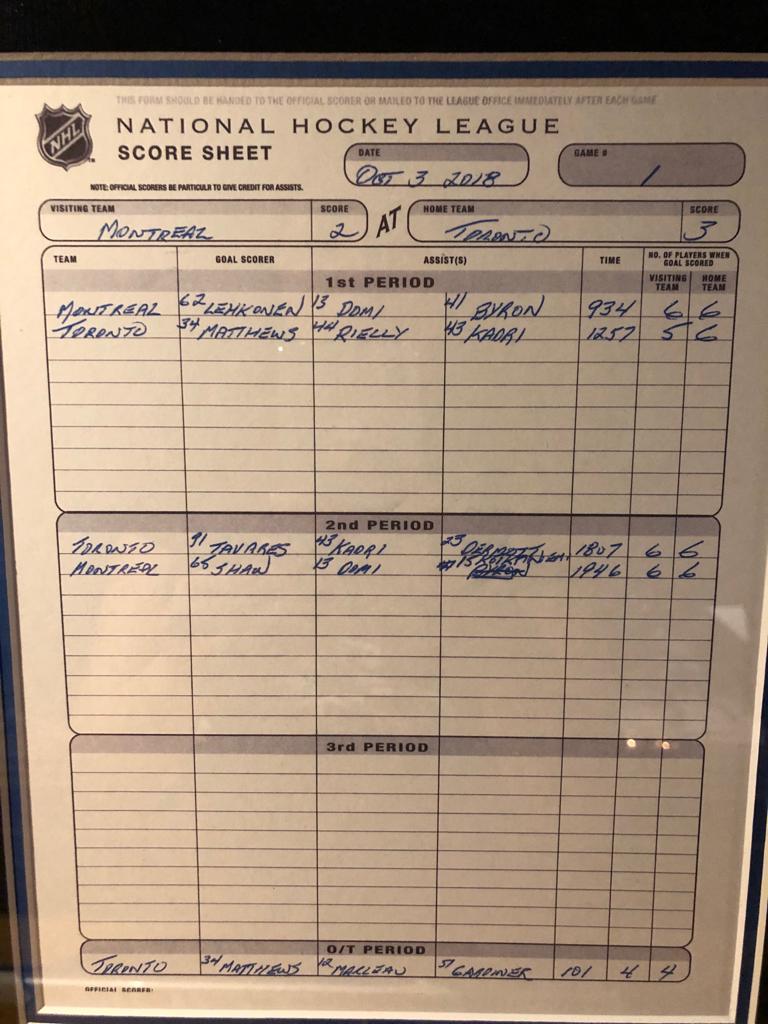 THIS FORM SHOULD BE HANDED TO THE OFFICIAL SCORER OR MAILED TO THE LEAGUE OFFICE IMMEDIATELY AFTER EACH GAME
NHL
NATIONAL HOCKEY LEAGUE
SCORE SHEET
DATE
OCT 3 2018
GAME #
1
NOTE: OFFICIAL SCORERS BE PARTICULR TO GIVE CREDIT FOR ASSISTS.
VISITING TEAM SCORE
MONTREAL 2
AT
HOME TEAM SCORE
TORONTO 3
TEAM GOAL SCORER ASSIST(S) TIME NO. OF PLAYERS WHEN GOAL SCORED
VISITING TEAM HOME TEAM
1st PERIOD
MONTREAL 62 LEHKONEN 13 DOMI 41 BYRON 934 6 6
TORONTO 34 MATTHEWS 44 RIELLY 43 KADRI 1257 5 6
2nd PERIOD
TORONTO 91 TAVARES 43 KADRI 23 DERMOTT 1807 6 6
MONTREAL 65 SHAW 13 DOMI 15 1946 6 6
3rd PERIOD
O/T PERIOD
TORONTO 34 MATTHEWS 12 MARLEAU 51 GARDINER 101 4 4
OFFICIAL SCORER: